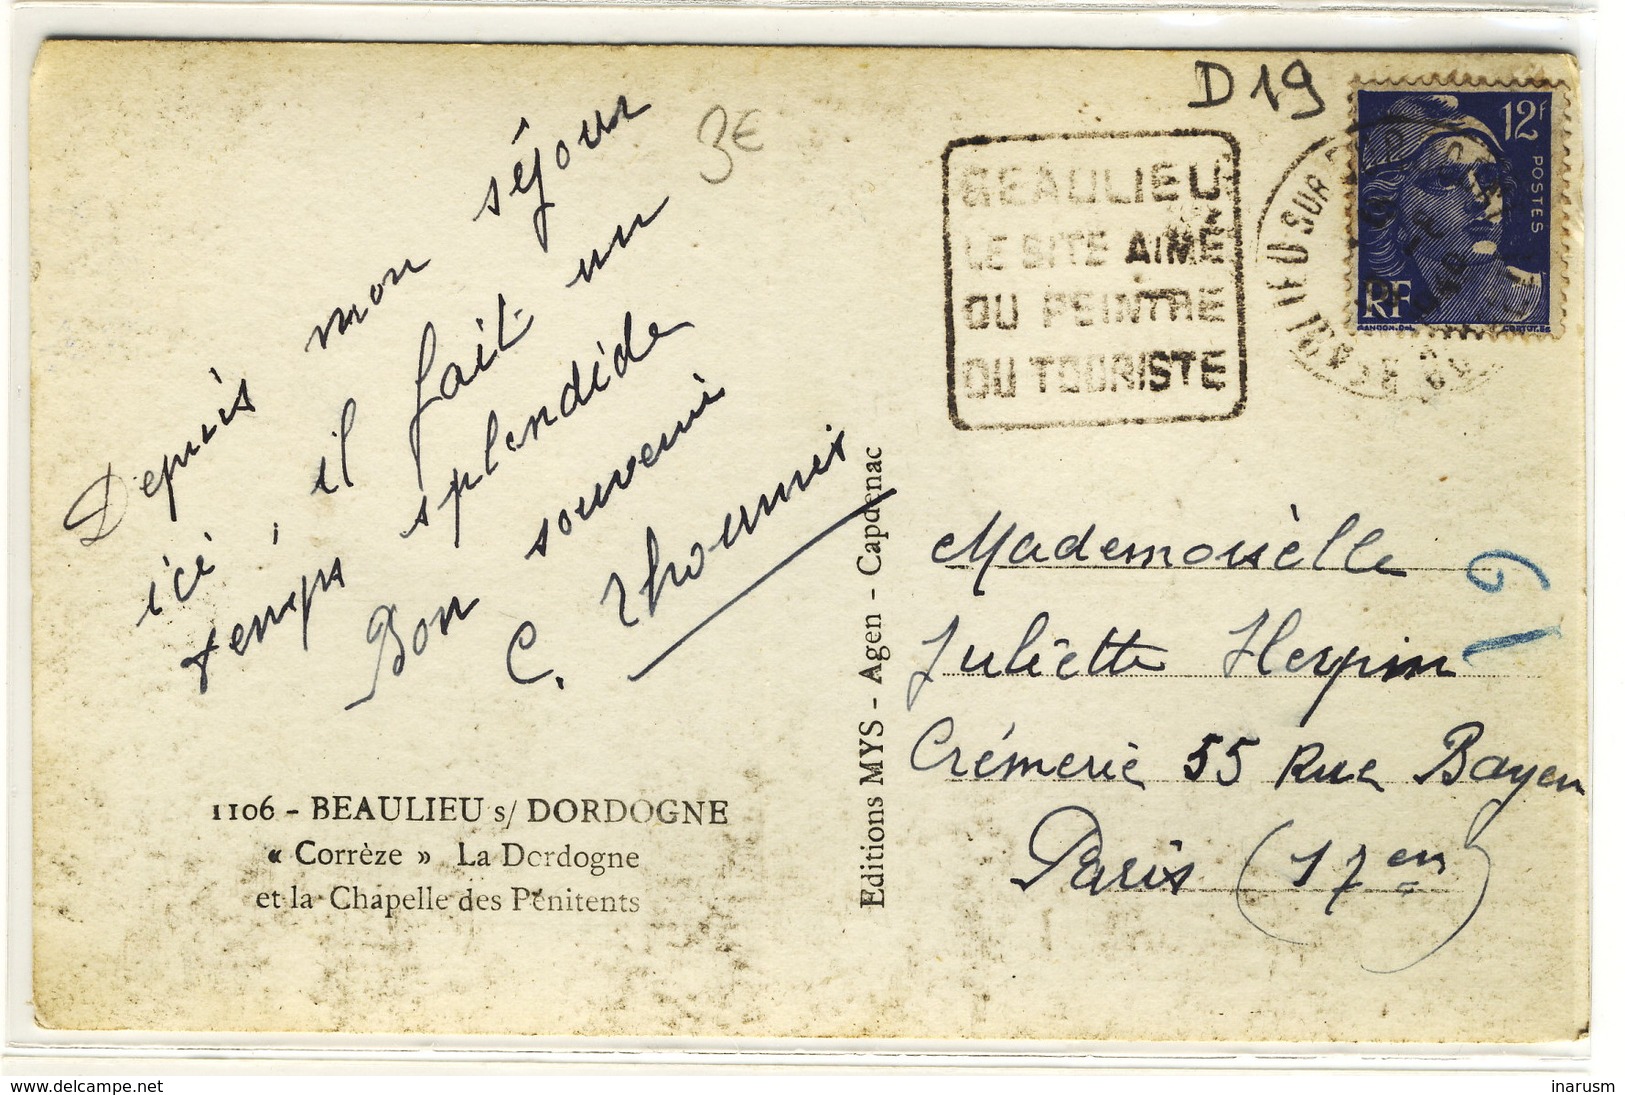 D 19
3€
Depuis mon séjour
ici, il fait un
temps splendide
Bon souvenir
C. Thoumis
1106 - BEAULIEU s/ DORDOGNE
« Corrèze » La Dordogne
et la Chapelle des Pénitents
Editions MYS - Agen - Capdenac
BEAULIEU
LE SITE AIMÉ
DU PEINTRE
DU TOURISTE
BEAULIEU SUR
12f
POSTES
RF
GANDON.DEL
CORTOT.SC
Mademoiselle
Juliette Herpin
Crémerie 55 Rue Bayen
Paris (17em)
delcampe.net
inarusm